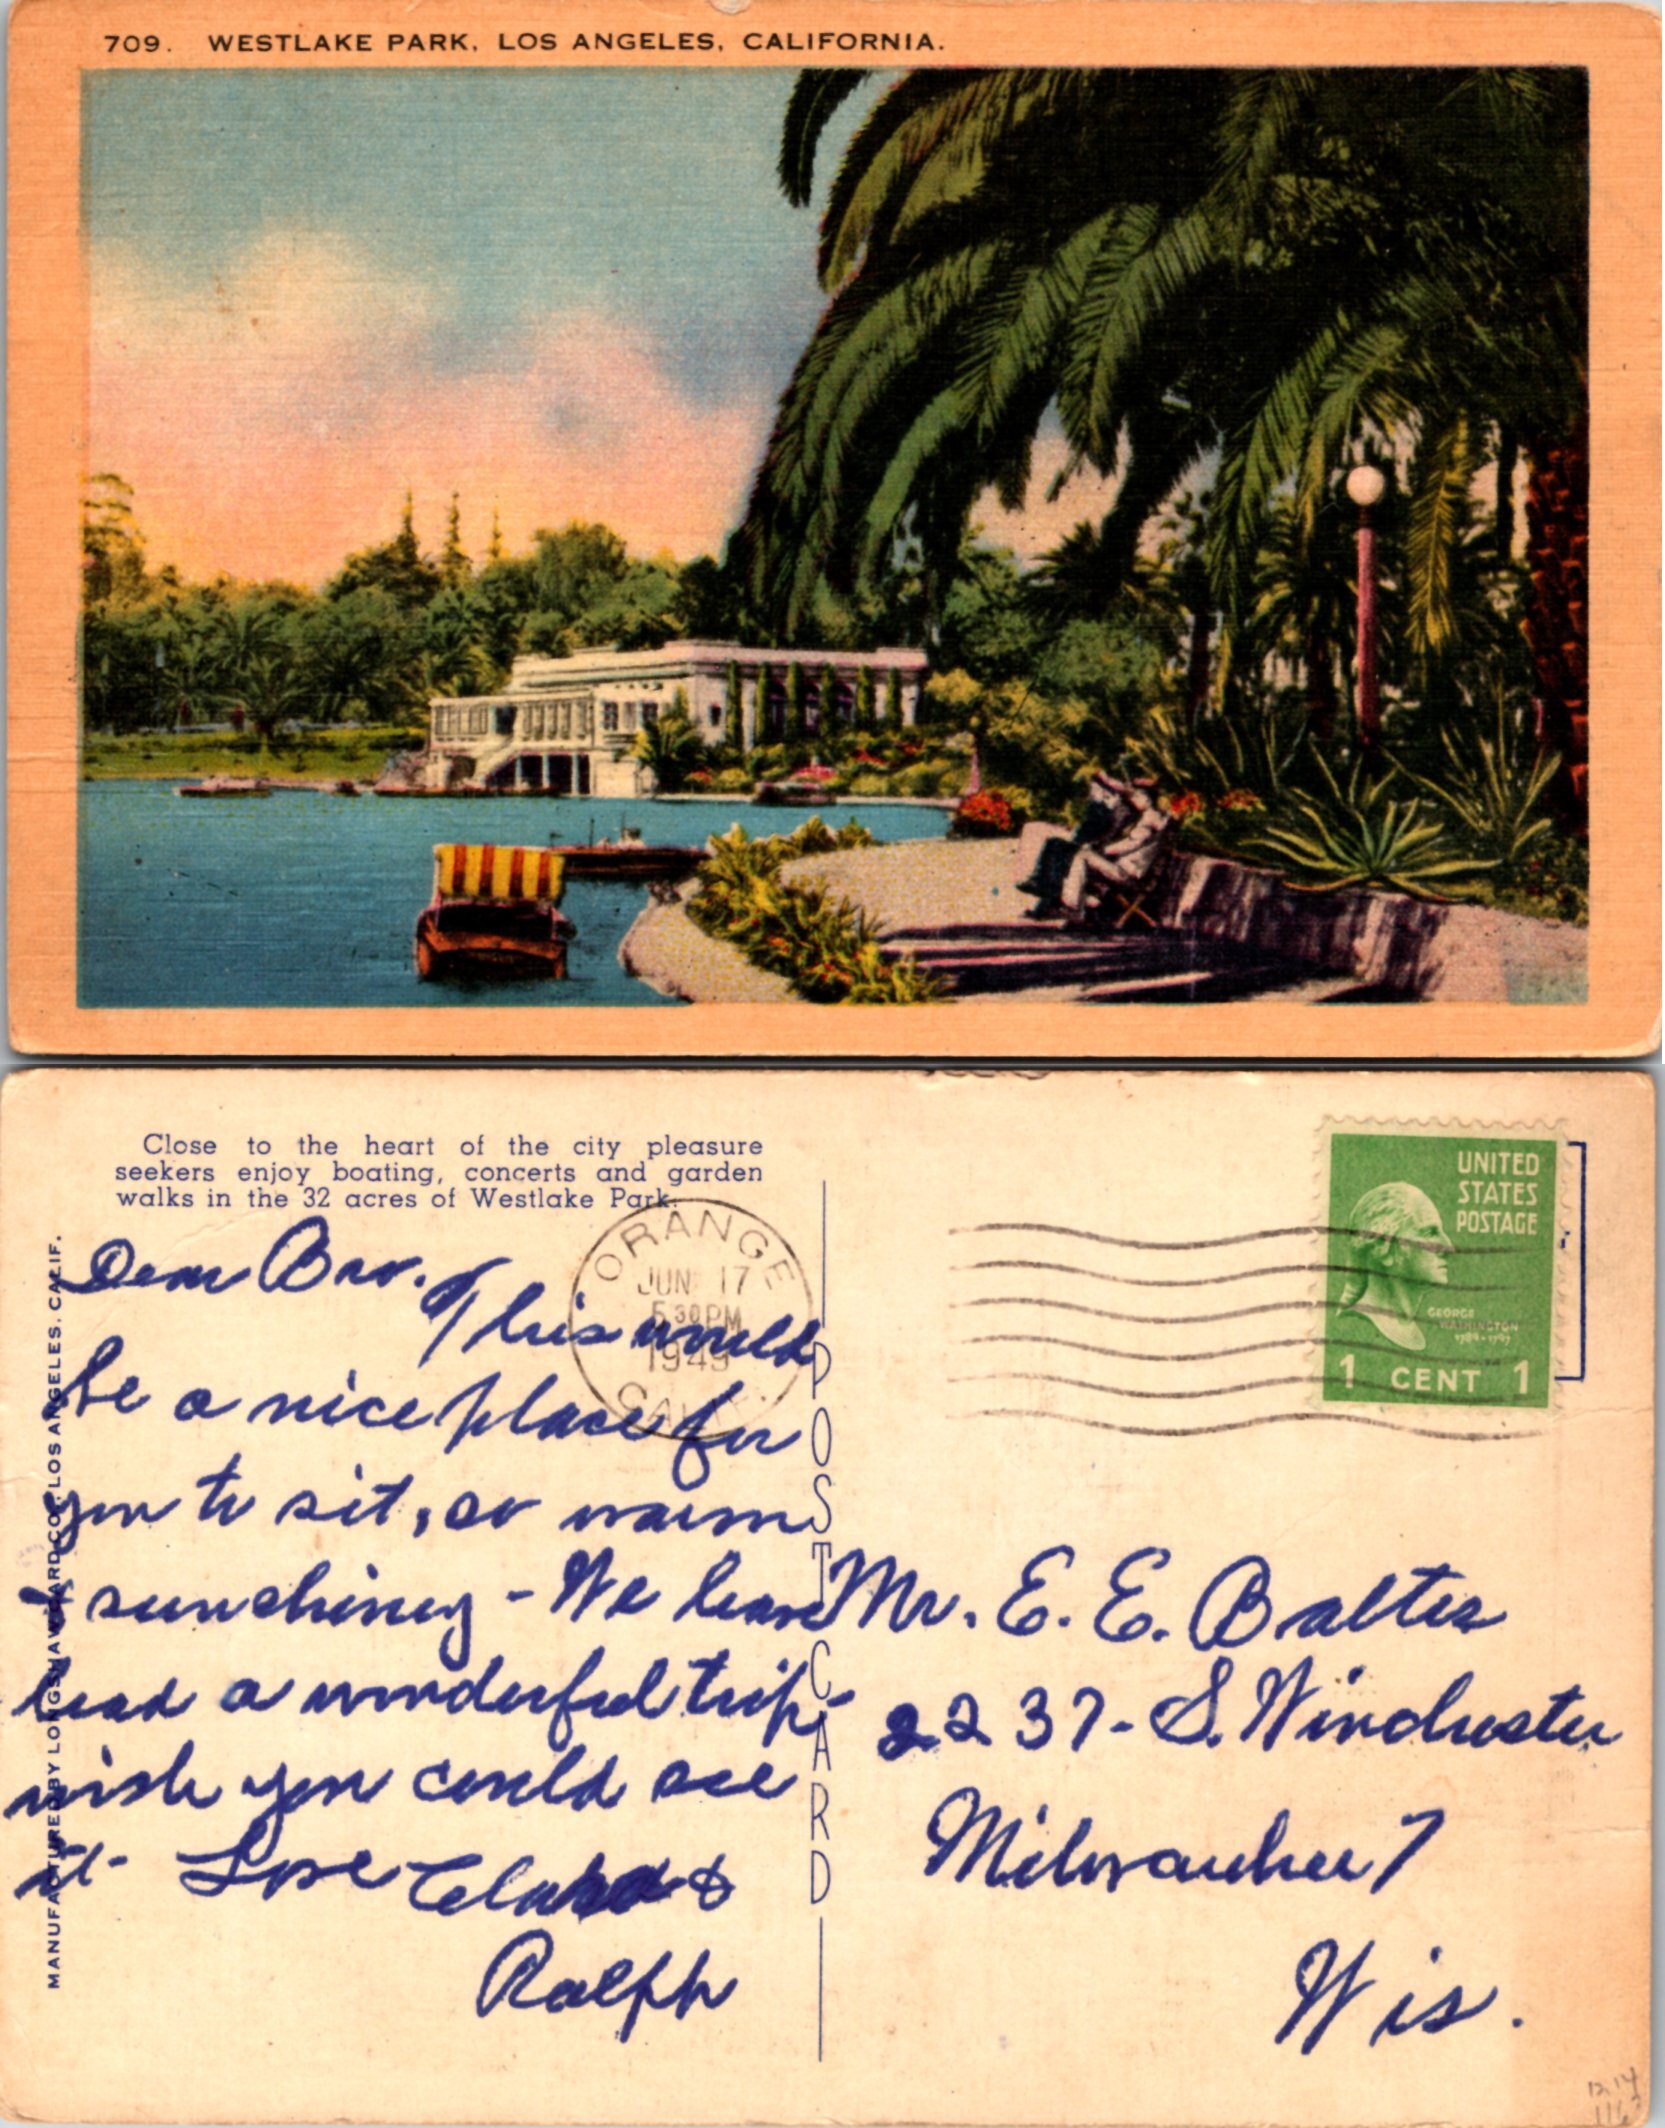 709. WESTLAKE PARK, LOS ANGELES, CALIFORNIA.
Close to the heart of the city pleasure
seekers enjoy boating, concerts and garden
walks in the 32 acres of Westlake Park.
MANUFACTURED BY LONGSHAW CARD CO., LOS ANGELES, CALIF.
Dear Bro.
This would
be a nice place for
you to sit, so warm
& sunshiney - We have
had a wonderful trip -
wish you could see
it - Love &
Ralph
ORANGE
JUN 17
5 30 PM
1949
CALIF.
POST CARD
UNITED
STATES
POSTAGE
GEORGE
WASHINGTON
1789-1797
1 CENT 1
Mr. E. E. Baltes
2237 - S. Winchester
Milwaukee 7
Wis.